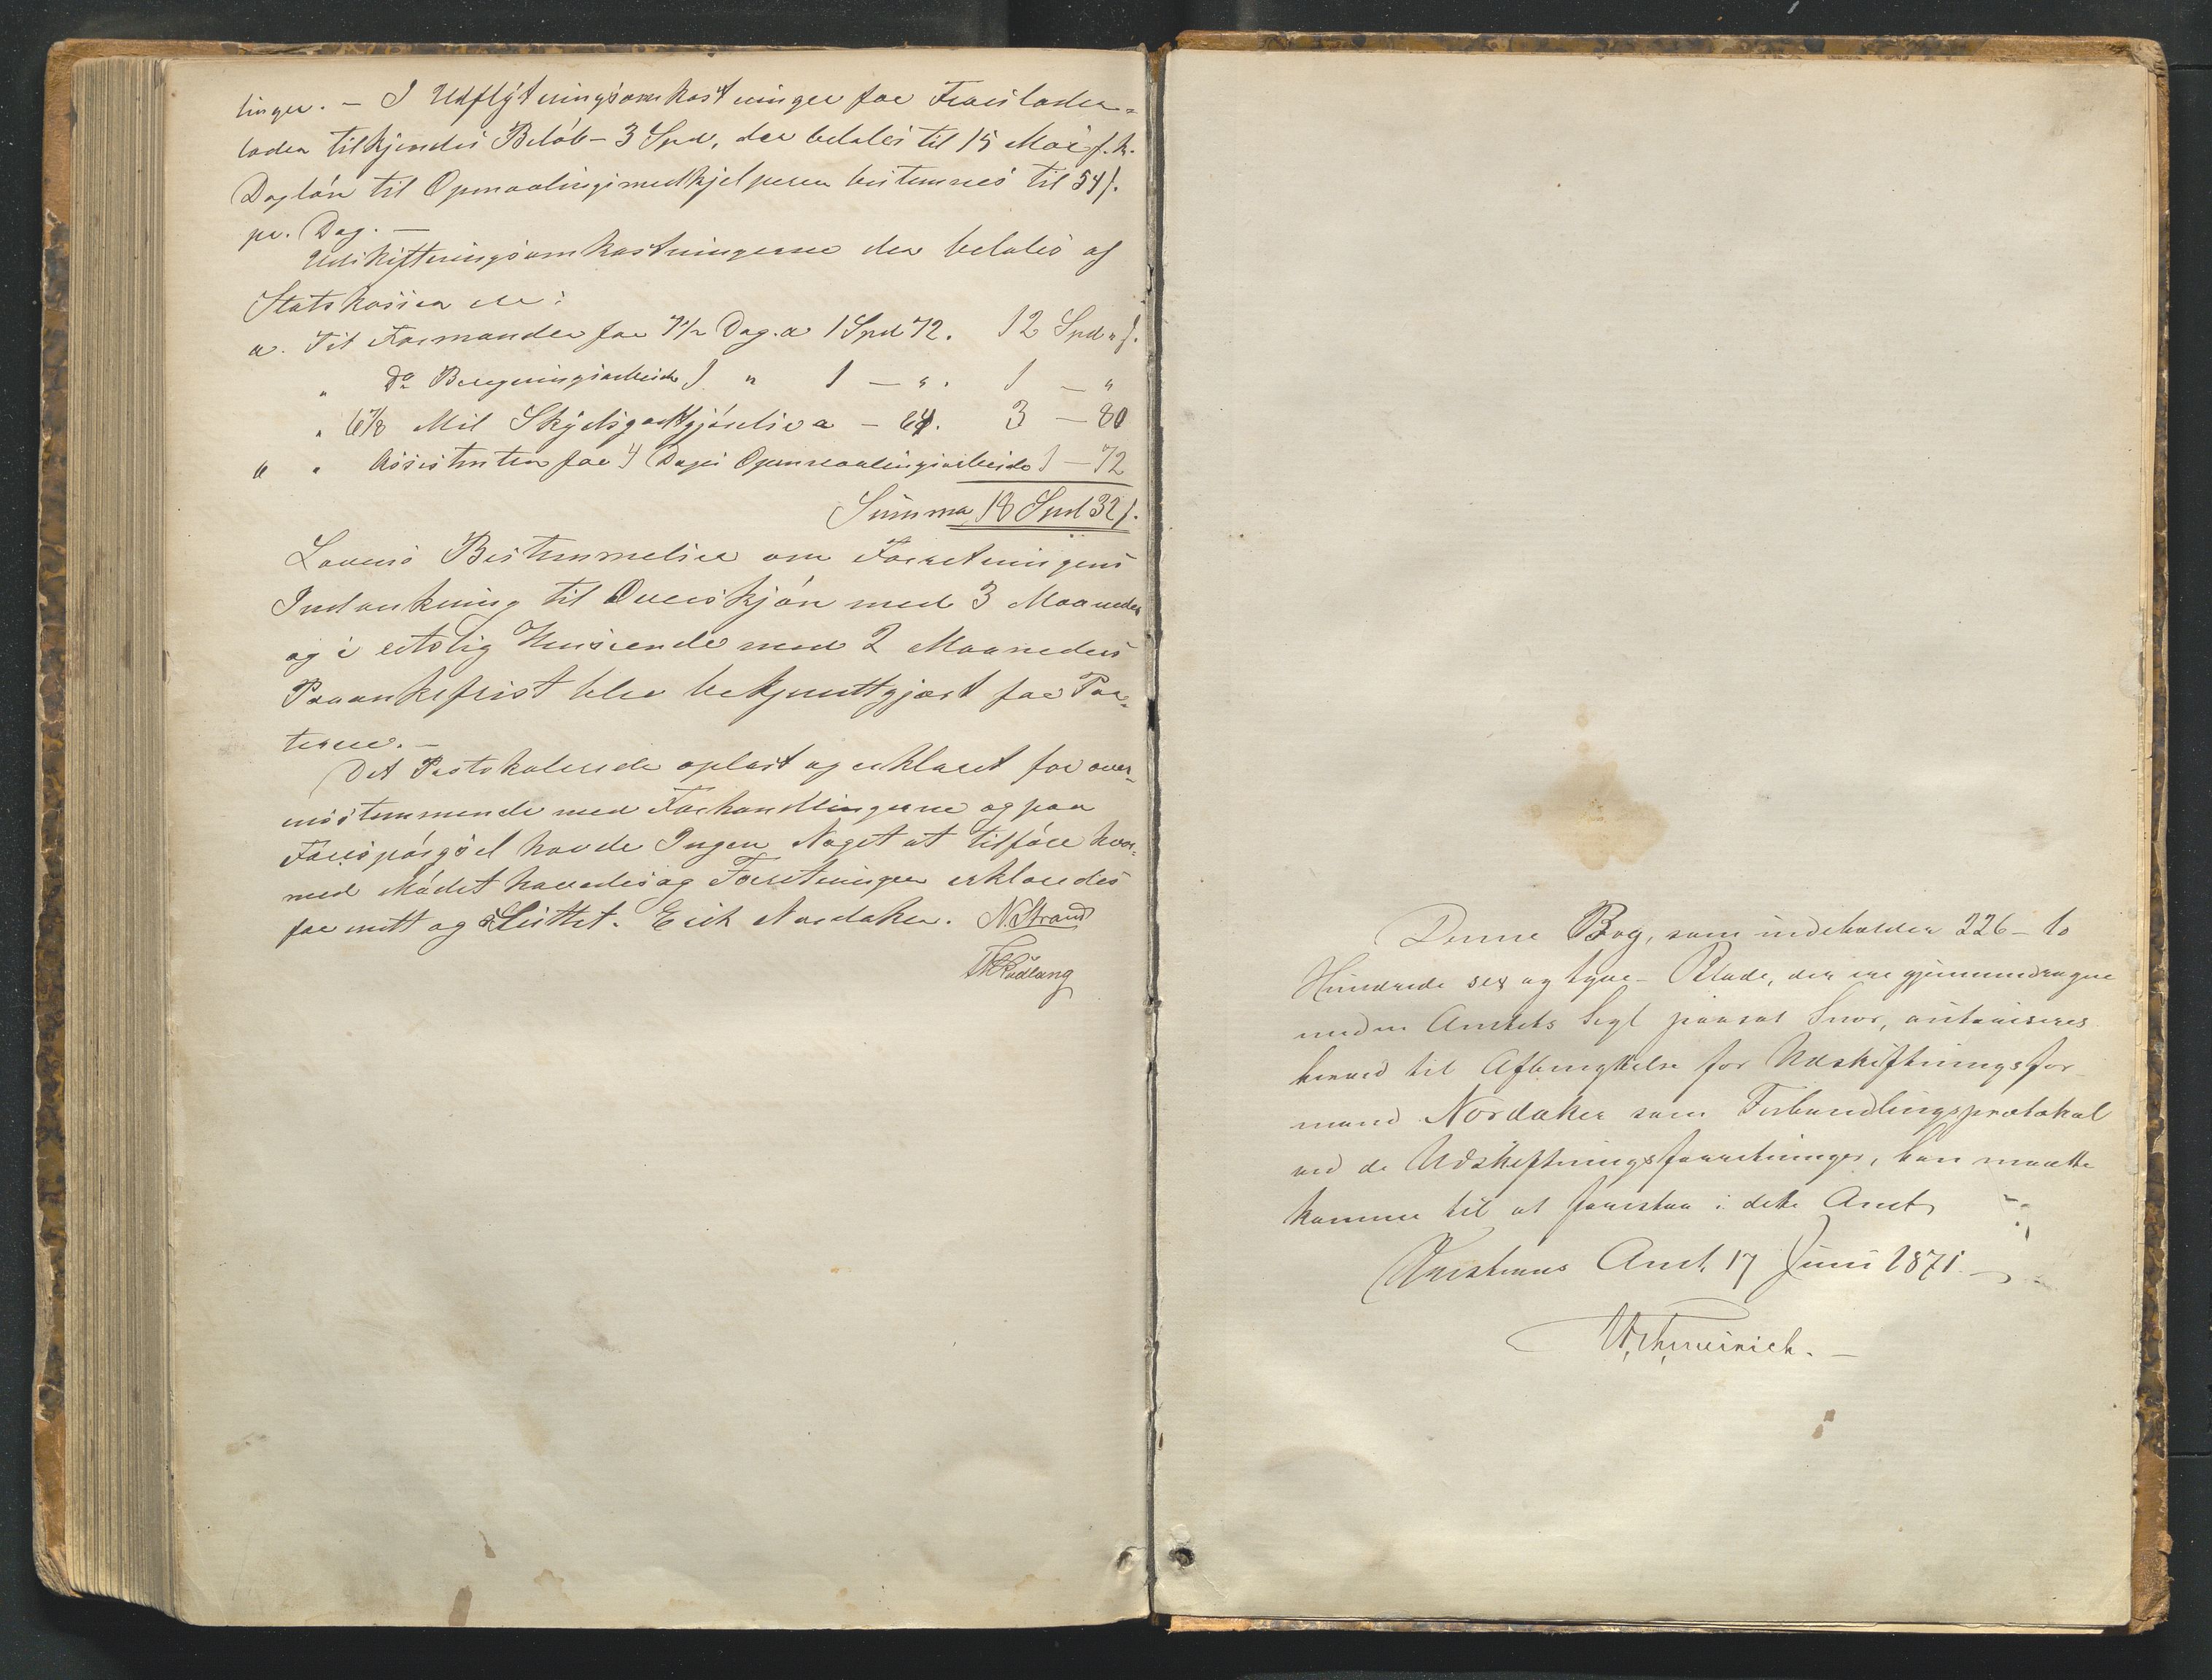 linger. – I Udflytningsomkostninger for Træsladen-
laden tilkjendes Beløb – 3 Spd, der betales til 15 Mai f. k.
Dagløn til Opmaalingsmedhjelperen bestemmes til 54 s.
pr. Dag. –
Udskiftningsomkostningerne der betales af
Statskassen ere:
a. Til Formanden for 7 1/2 Dag. a 1 Spd 72. 12 Spd „ s.
„ Do Beregningsarbeide 1 „ 1 – „ . 1 – „
„ 6 7/8 Mil Skydsgodtgjørelse a – 64. 3 – 80
„ „ Assistenten for 4 Dages Opmaalingsarbeide 1 – 72
Summa 18 Spd 32 s.
Lovens Bestemmelser om Forretningens
Indankning til Overskjøn med 3 Maaneder
og i retslig Henseende med 2 Maaneders
Paaankefrist blev bekjentgjort for Par-
terne. –
Det Protokolerede oplæst og erklæret for over-
ensstemmende med Forhandlingerne og paa
Forespørgsel havde Ingen Noget at tilføre hvor-
med Mødet hævedes og Forretningen erklæredes
for endt og Sluttet. Erik Nordaker. N. Strand
Rudlang
Denne Bog, som indeholder 226 – to
Hundrede sex og tyve – Blade, der ere gjennemdragne
med en Amtets Segl paasat Snor, autoriseres
herved til Afbenyttelse for Udskiftningsfor-
mand Nordaker som Forhandlingsprotokol
ved de Udskiftningsforretninger, han maatte
komme til at forestaa i dette Amt
Christians Amt 17 Juni 1871 –